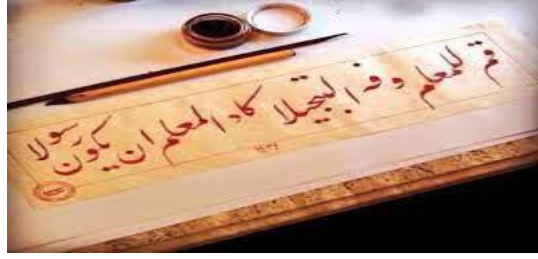 قم للمعلم وفه التبجيلا كاد المعلم ان يكون رسولا